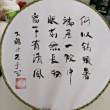 何以銷煩暑
端居一院中
眼前無長物
窗下有清風